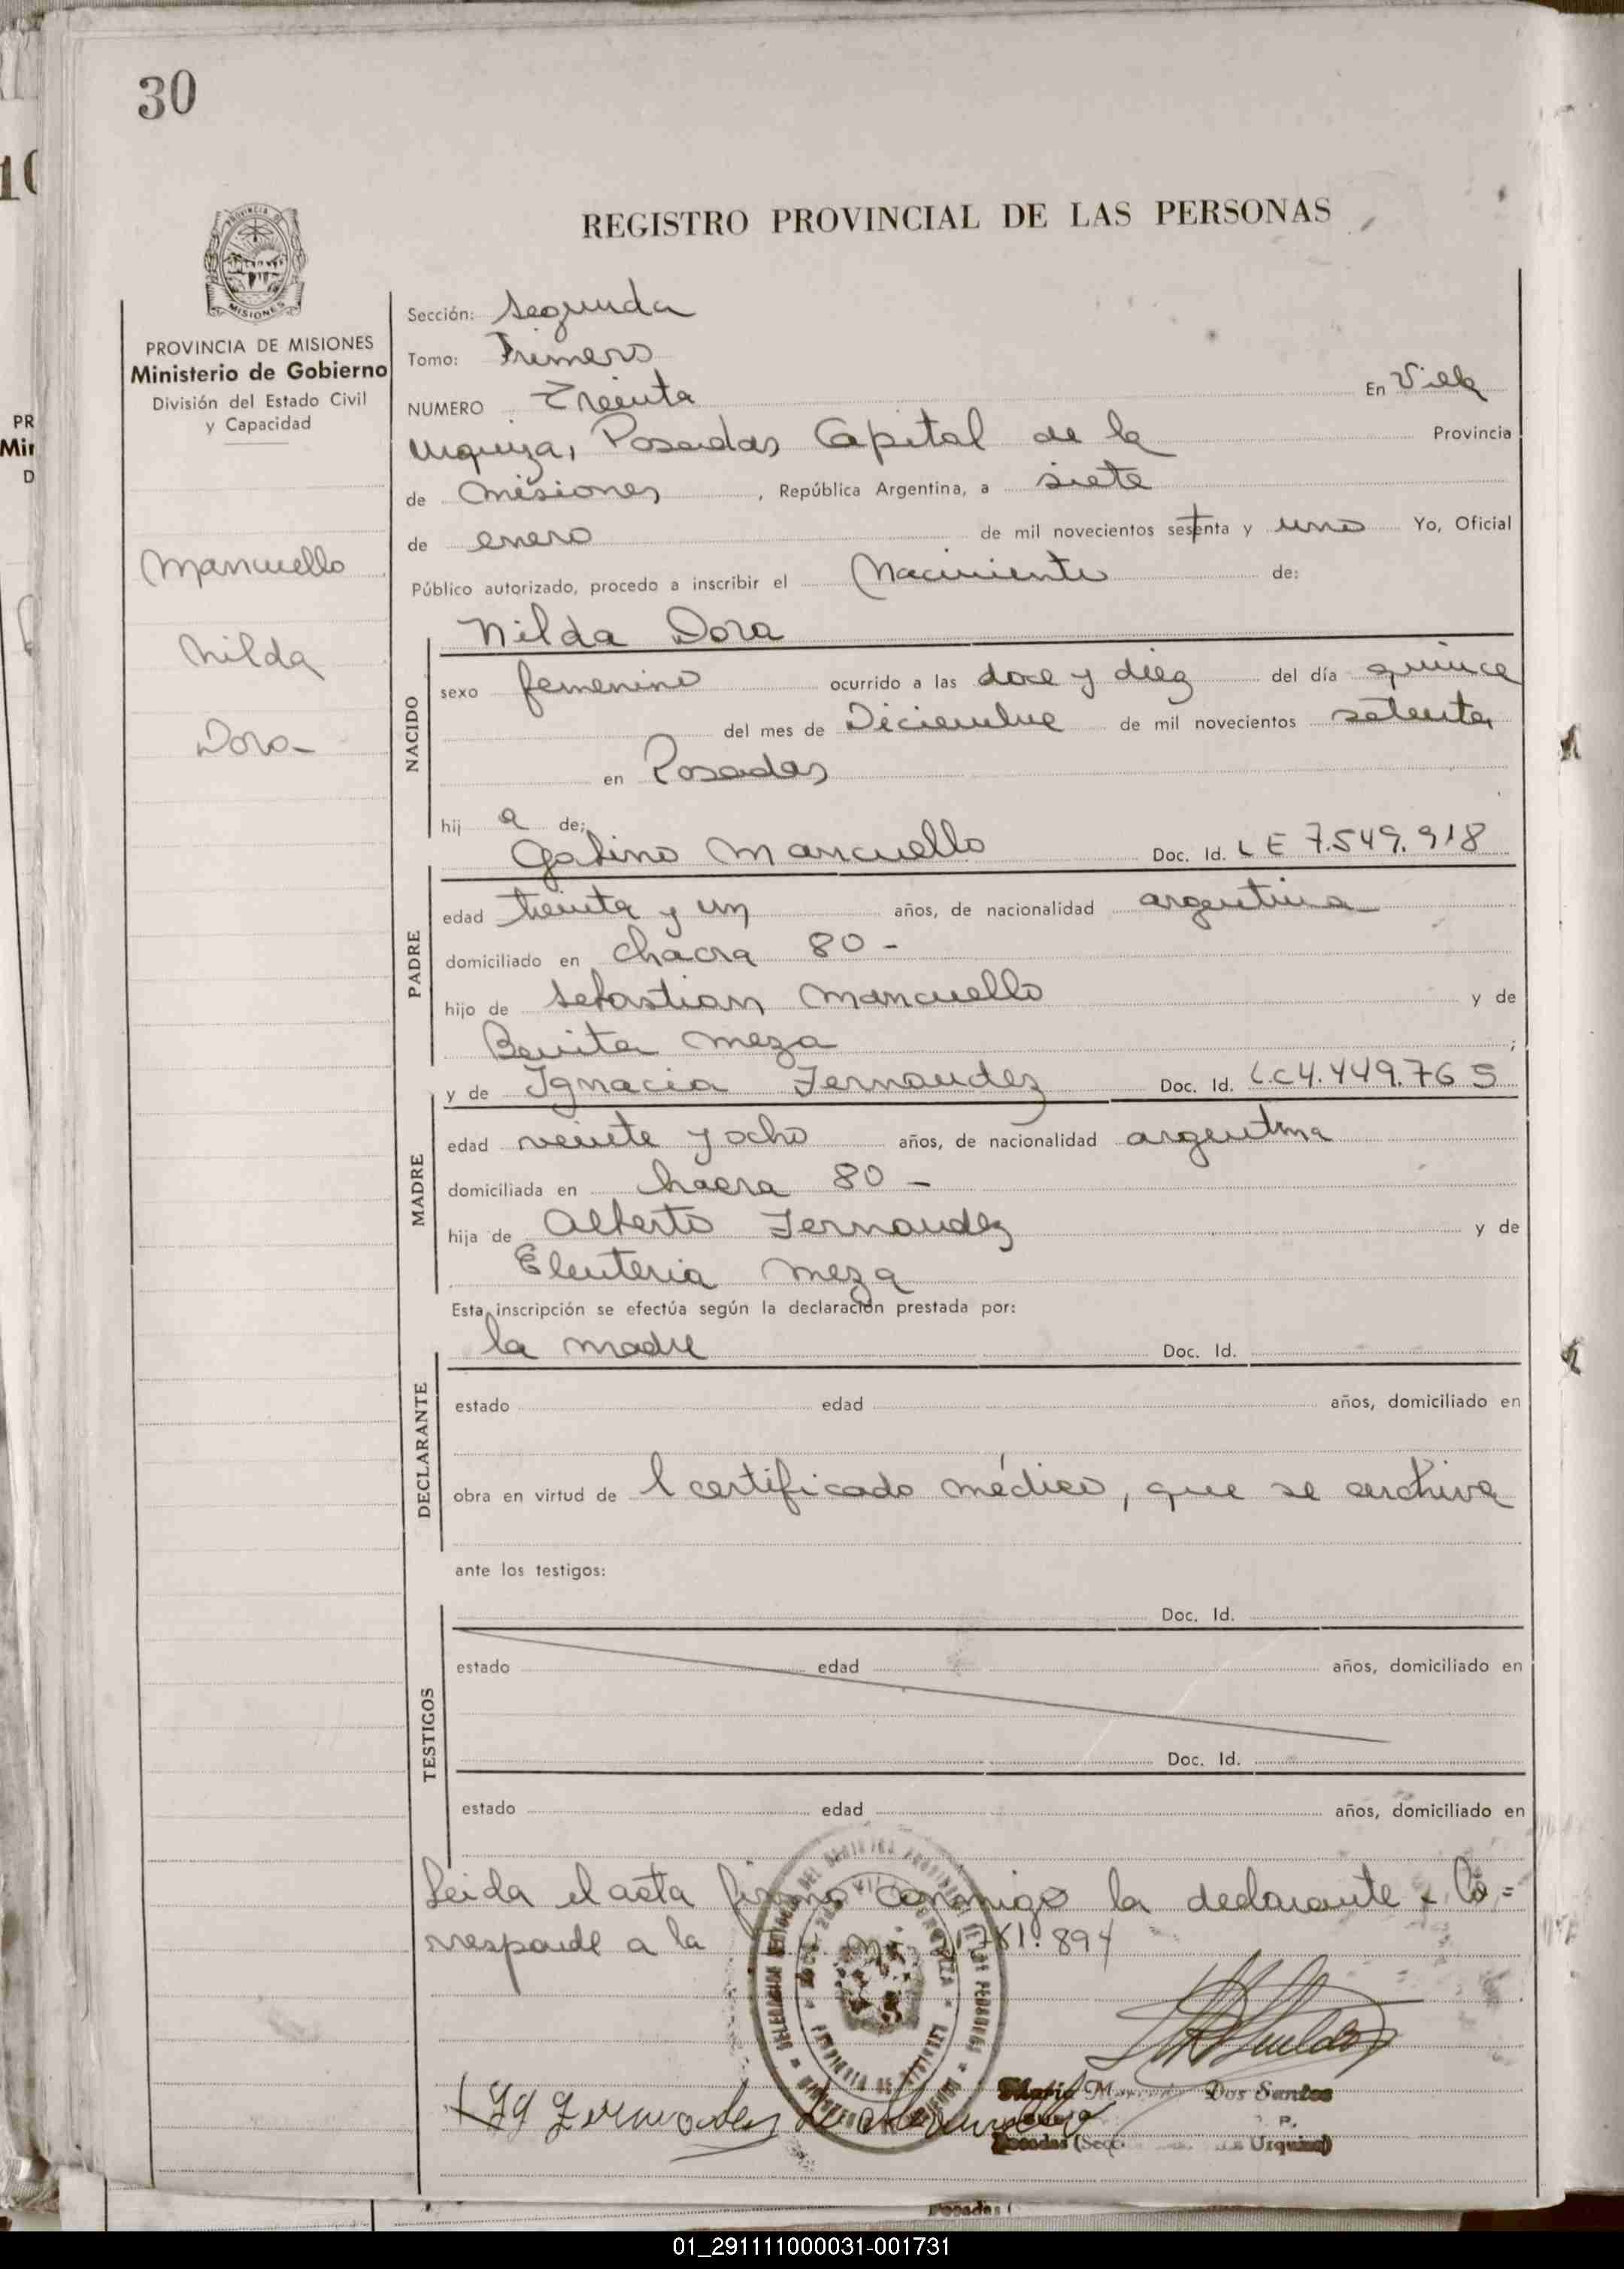 30
REGISTRO PROVINCIAL DE LAS PERSONAS
MISIONES
PROVINCIA DE MISIONES
Ministerio de Gobierno
División del Estado Civil
y Capacidad
Mancuello
Nilda
Dora
Sección: Segunda
Tomo: Primero
NUMERO Treinta En Villa
Urquiza, Posadas Capital de la Provincia
de Misiones, República Argentina, a siete
de enero de mil novecientos setenta y uno Yo, Oficial
Público autorizado, procedo a inscribir el Nacimiento de:
Nilda Dora
NACIDO
sexo femenino ocurrido a las doce y diez del día quince
del mes de Diciembre de mil novecientos setenta
en Posadas
hij a de:
Gabino Mancuello Doc. Id. LE 7.549.918
PADRE
edad treinta y un años, de nacionalidad argentina
domiciliado en chacra 80 -
hijo de Sebastian Mancuello y de
Benita Meza ;
y de Ignacia Fernandez Doc. Id. L.C 4.449.765
MADRE
edad veinte y ocho años, de nacionalidad argentina
domiciliada en hacra 80 -
hija de Alberto Fernandez y de
Eleuteria Meza
Esta inscripción se efectúa según la declaración prestada por:
la madre Doc. Id.
DECLARANTE
estado edad años, domiciliado en
obra en virtud de l certificado médico, que se archiva
ante los testigos:
Doc. Id.
TESTIGOS
estado edad años, domiciliado en
Doc. Id.
estado edad años, domiciliado en
Leida el acta firma conmigo la declarante - Co=
rresponde a la 894
Ig Fernandez de Mancuello
Dos Santos
Posadas Urquiza)
01_291111000031-001731